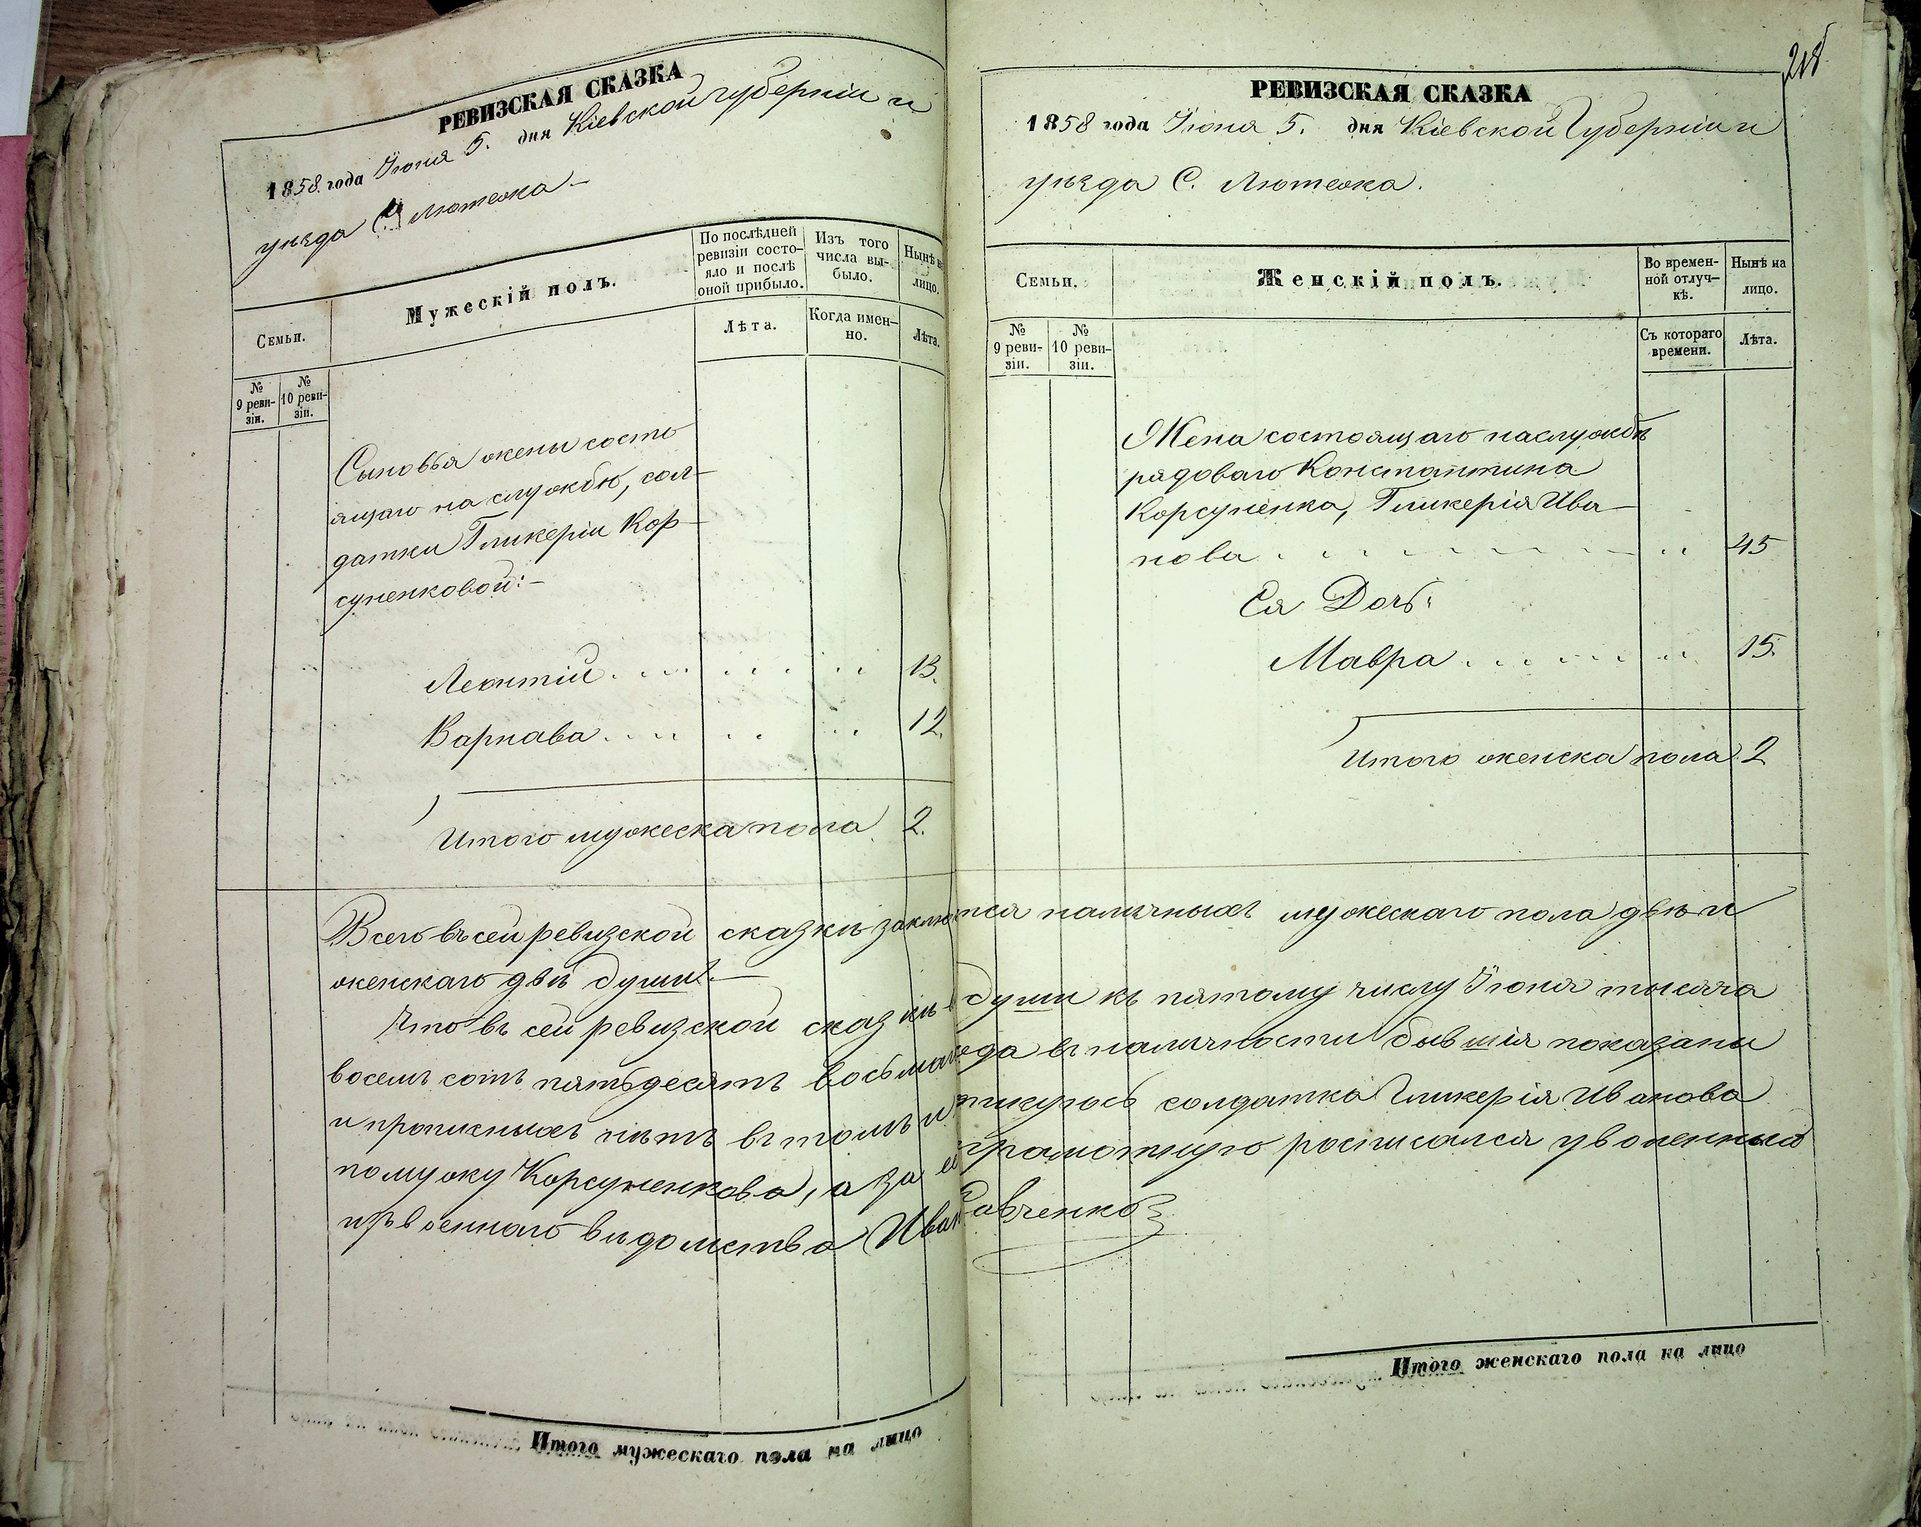 РЕВИЗСКАЯ СКАЗКА
1858 года Іюня 5. дня Кіевской губерніи и
уѣзда С. Лютежа
Семьи.
Мужескій полъ.
По послѣдней ревизіи состо-
яло и послѣ
оной прибыло.
Изъ того
числа вы-
было.
Нынѣ на
лицо.
№
9 реви-
зіи.
№
10 реви-
зіи.
Лѣта.
Когда имен-
но.
Лѣта.
Сыновья жены состо
ящаго на службѣ, сол-
датки Гликеріи Кор-
суненковой:-
Леонтій 13.
Варнава 12.
Итого мужеска пола 2.
218
РЕВИЗСКАЯ СКАЗКА
1858 года Іюня 5. дня Кіевской Губерніи и
уѣзда С. Лютежа.
Семьи.
Женскій полъ.
Во времен-
ной отлуч-
кѣ.
Нынѣ на
лицо.
№
9 реви-
зіи.
№
10 реви-
зіи.
Съ котораго
времени.
Лѣта.
Жена состоящаго на службѣ
рядоваго Константина
Корсуненка, Гликерія Ива-
нова 45
Ея Дочь:
Мавра 15.
Итого женска пола 2
Всего въ сей ревизской сказкѣ заклю тся наличныхъ мужескаго пола двѣ и
женскаго двѣ души.-
Что въ сей ревизской сказкѣ души къ пятому числу Іюня тысяча
восемь сотъ пятьдесятъ восьмаго года въ наличности бывшія показаны
и прописныхъ нѣтъ въ томъ и тикуюсь солдатка Гликерія Иванова
по мужу Корсуненкова, а за ея грамотную росписался уволенный
изъ военнаго вѣдомства Иван Савченко
Итого мужескаго пола на лицо
Итого женскаго пола на лицо